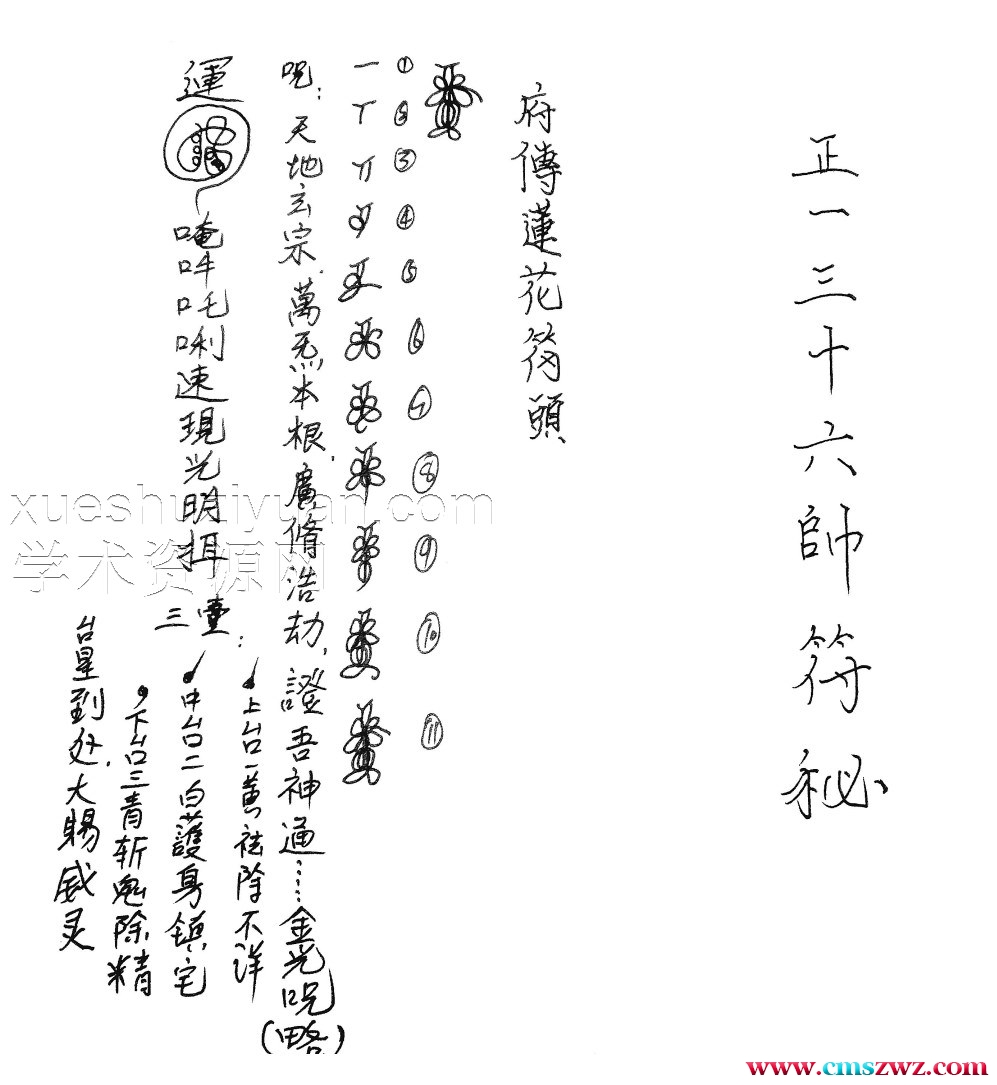 正一三十六帥符秘
府傳蓮花符頭
① ② ③ ④ ⑤ ⑥ ⑦ ⑧ ⑨ ⑩ ⑪
咒：天地玄宗，萬炁本根，廣脩浩劫，證吾神通……金光咒(略)
運
唵吽吒唎速現光明拝
三臺：
上台一黄祛除不洋
中台二白護身鎮宅
下台三青斬鬼除精
台星到处，大賜威灵
xueshuziyuan.com
学术资源网
www.cmszwz.com